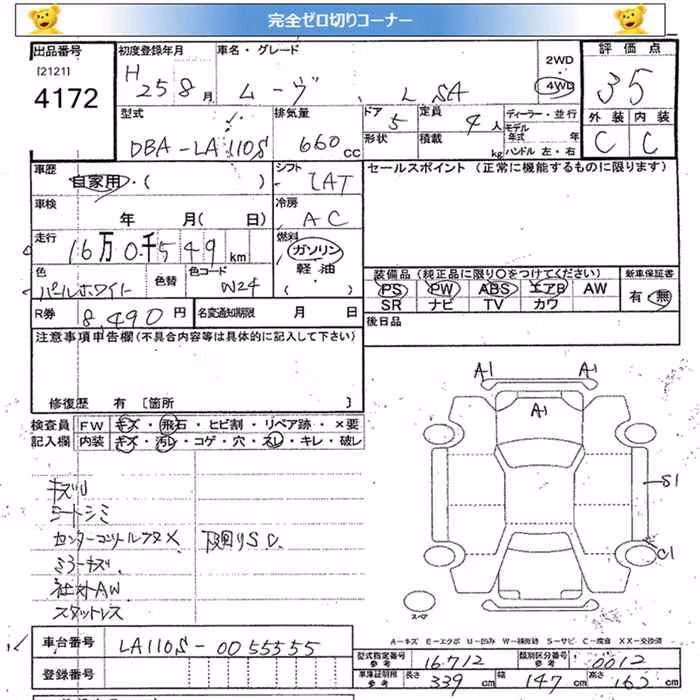 完全ゼロ切りコーナー
出品番号
[2121]
4172
初度登録年月
H 25 8月
車名・グレード
ムーヴ L SA
2WD
4WD
評価点
3 5
外装 内装
C C
型式
DBA-LA110S
排気量
660cc
ドア 5
形状
定員 4人
積載 kg
ディーラー・並行
モデル年式 年
ハンドル 左・右
車歴
自家用・( )
シフト
IAT
セールスポイント (正常に機能するものに限ります)
車検
年 月( 日)
冷房
AC
走行
16万0千549km
燃料
ガソリン
軽油
( )
色
パールホワイト
色替
色コード
W24
装備品(純正品に限り○をつけてください)
PS PW ABS エアB AW
SR ナビ TV カワ
新車保証書
有・無
R券 8,490円
名変通知期限 月 日
後日品
注意事項申告欄(不具合内容等は具体的に記入して下さい)
修復歴 有 [箇所 ]
検査員記入欄
FW キズ・飛石・ヒビ割・リペア跡・×要
内装 キズ・汚レ・コゲ・穴・スレ・キレ・破レ
キズU
シートシミ
センターコントロールフタメ
下回りSC
ミラーキズ
社外AW
スタットレス
A1 A1
A1
S1
C1
スペア
A-キズ E-エクボ U-凹み W-補修跡 S-サビ C-腐食 XX-交換済
車台番号 LA110S-0055555
登録番号
型式指定番号 参考 16712
類別区分番号 参考 0012
車庫証明用 参考 長さ 339cm 幅 147cm 高さ 163cm